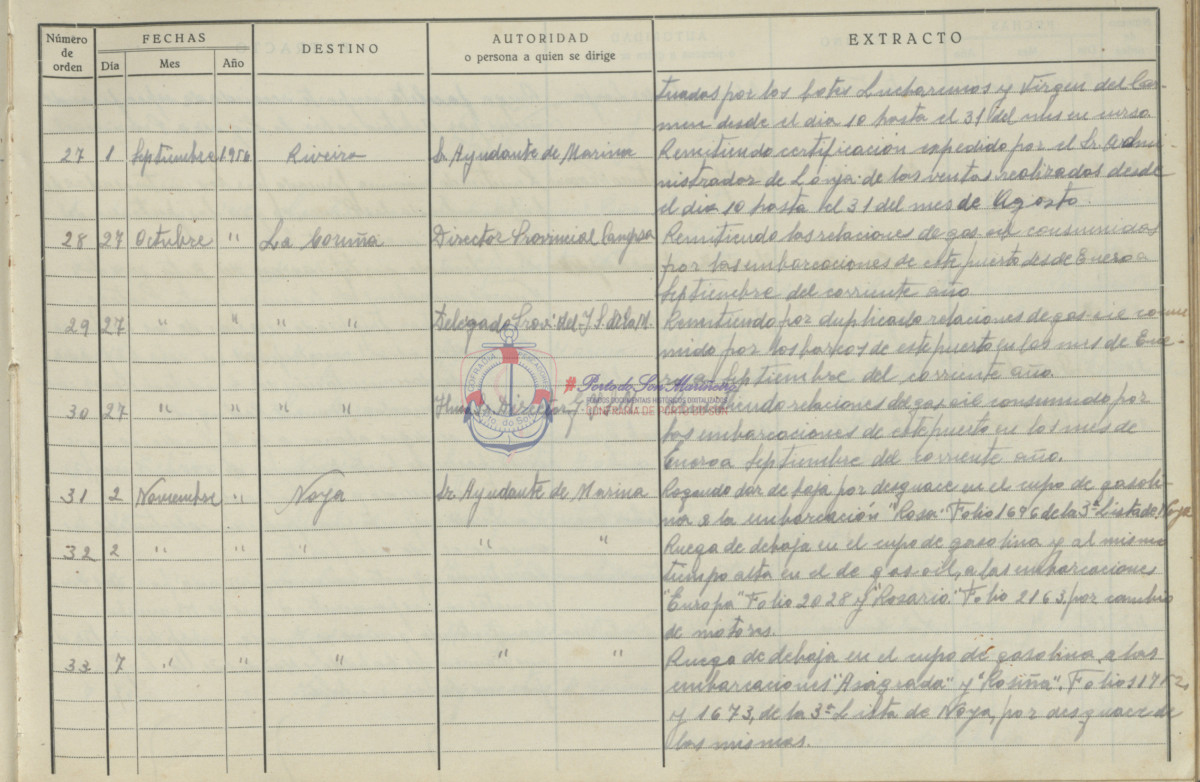 Número de orden FECHAS DESTINO AUTORIDAD o persona a quien se dirige EXTRACTO
Día Mes Año
tuadas por los botes Lucharemos y Virgen del Car-
men desde el dia 10 hasta el 31 del mes en curso.
27 1 Septiembre 1956 Riveira Sr. Ayudante de Marina Remitiendo certificación expedido por el Sr. Admi-
nistrador de Lonja de las ventas realizadas desde
el dia 10 hasta el 31 del mes de Agosto.
28 27 Octubre " La Coruña Director Provincial Campsa Remitiendo las relaciones de gas-oil consumidas
por las embarcaciones de este puerto desde Enero a
Septiembre del corriente año
29 27 " " " " Delegado Provi. del Remitiendo por duplicado relaciones de gas-oil
mido por los barcos de este puerto en los mes de Ene-
Septiembre del corriente año.
30 27 " " " " Director relaciones de gas oil consumido por
las embarcaciones de este puerto en los mes de
Enero a Septiembre del corriente año.
31 2 Noviembre " Noya Sr. Ayudante de Marina Rogando dar de baja por desguace en el cupo de gasoli-
na a la embarcación "Rosa" Folio 1696 de la 3ª Lista de Noya
32 2 " " " " " Ruega de debaja en el cupo de gasolina y al mismo
tiempo alta en el de gas-oil, a las embarcaciones
"Europa" Folio 2028 y "Rosario." Folio 2163, por cambio
de motores.
33 7 " " " " " Ruega de debaja en el cupo de gasolina a las
embarcaciones "Asagrada" y "Rosiña". Folios
y 1673, de la 3ª Lista de Noya, por desguace de
las mismas.
# Porto do Son Mariñeiro
FONDOS DOCUMENTAIS HISTÓRICOS DIGITALIZADOS
CONFRARÍA DE PORTO DO SON